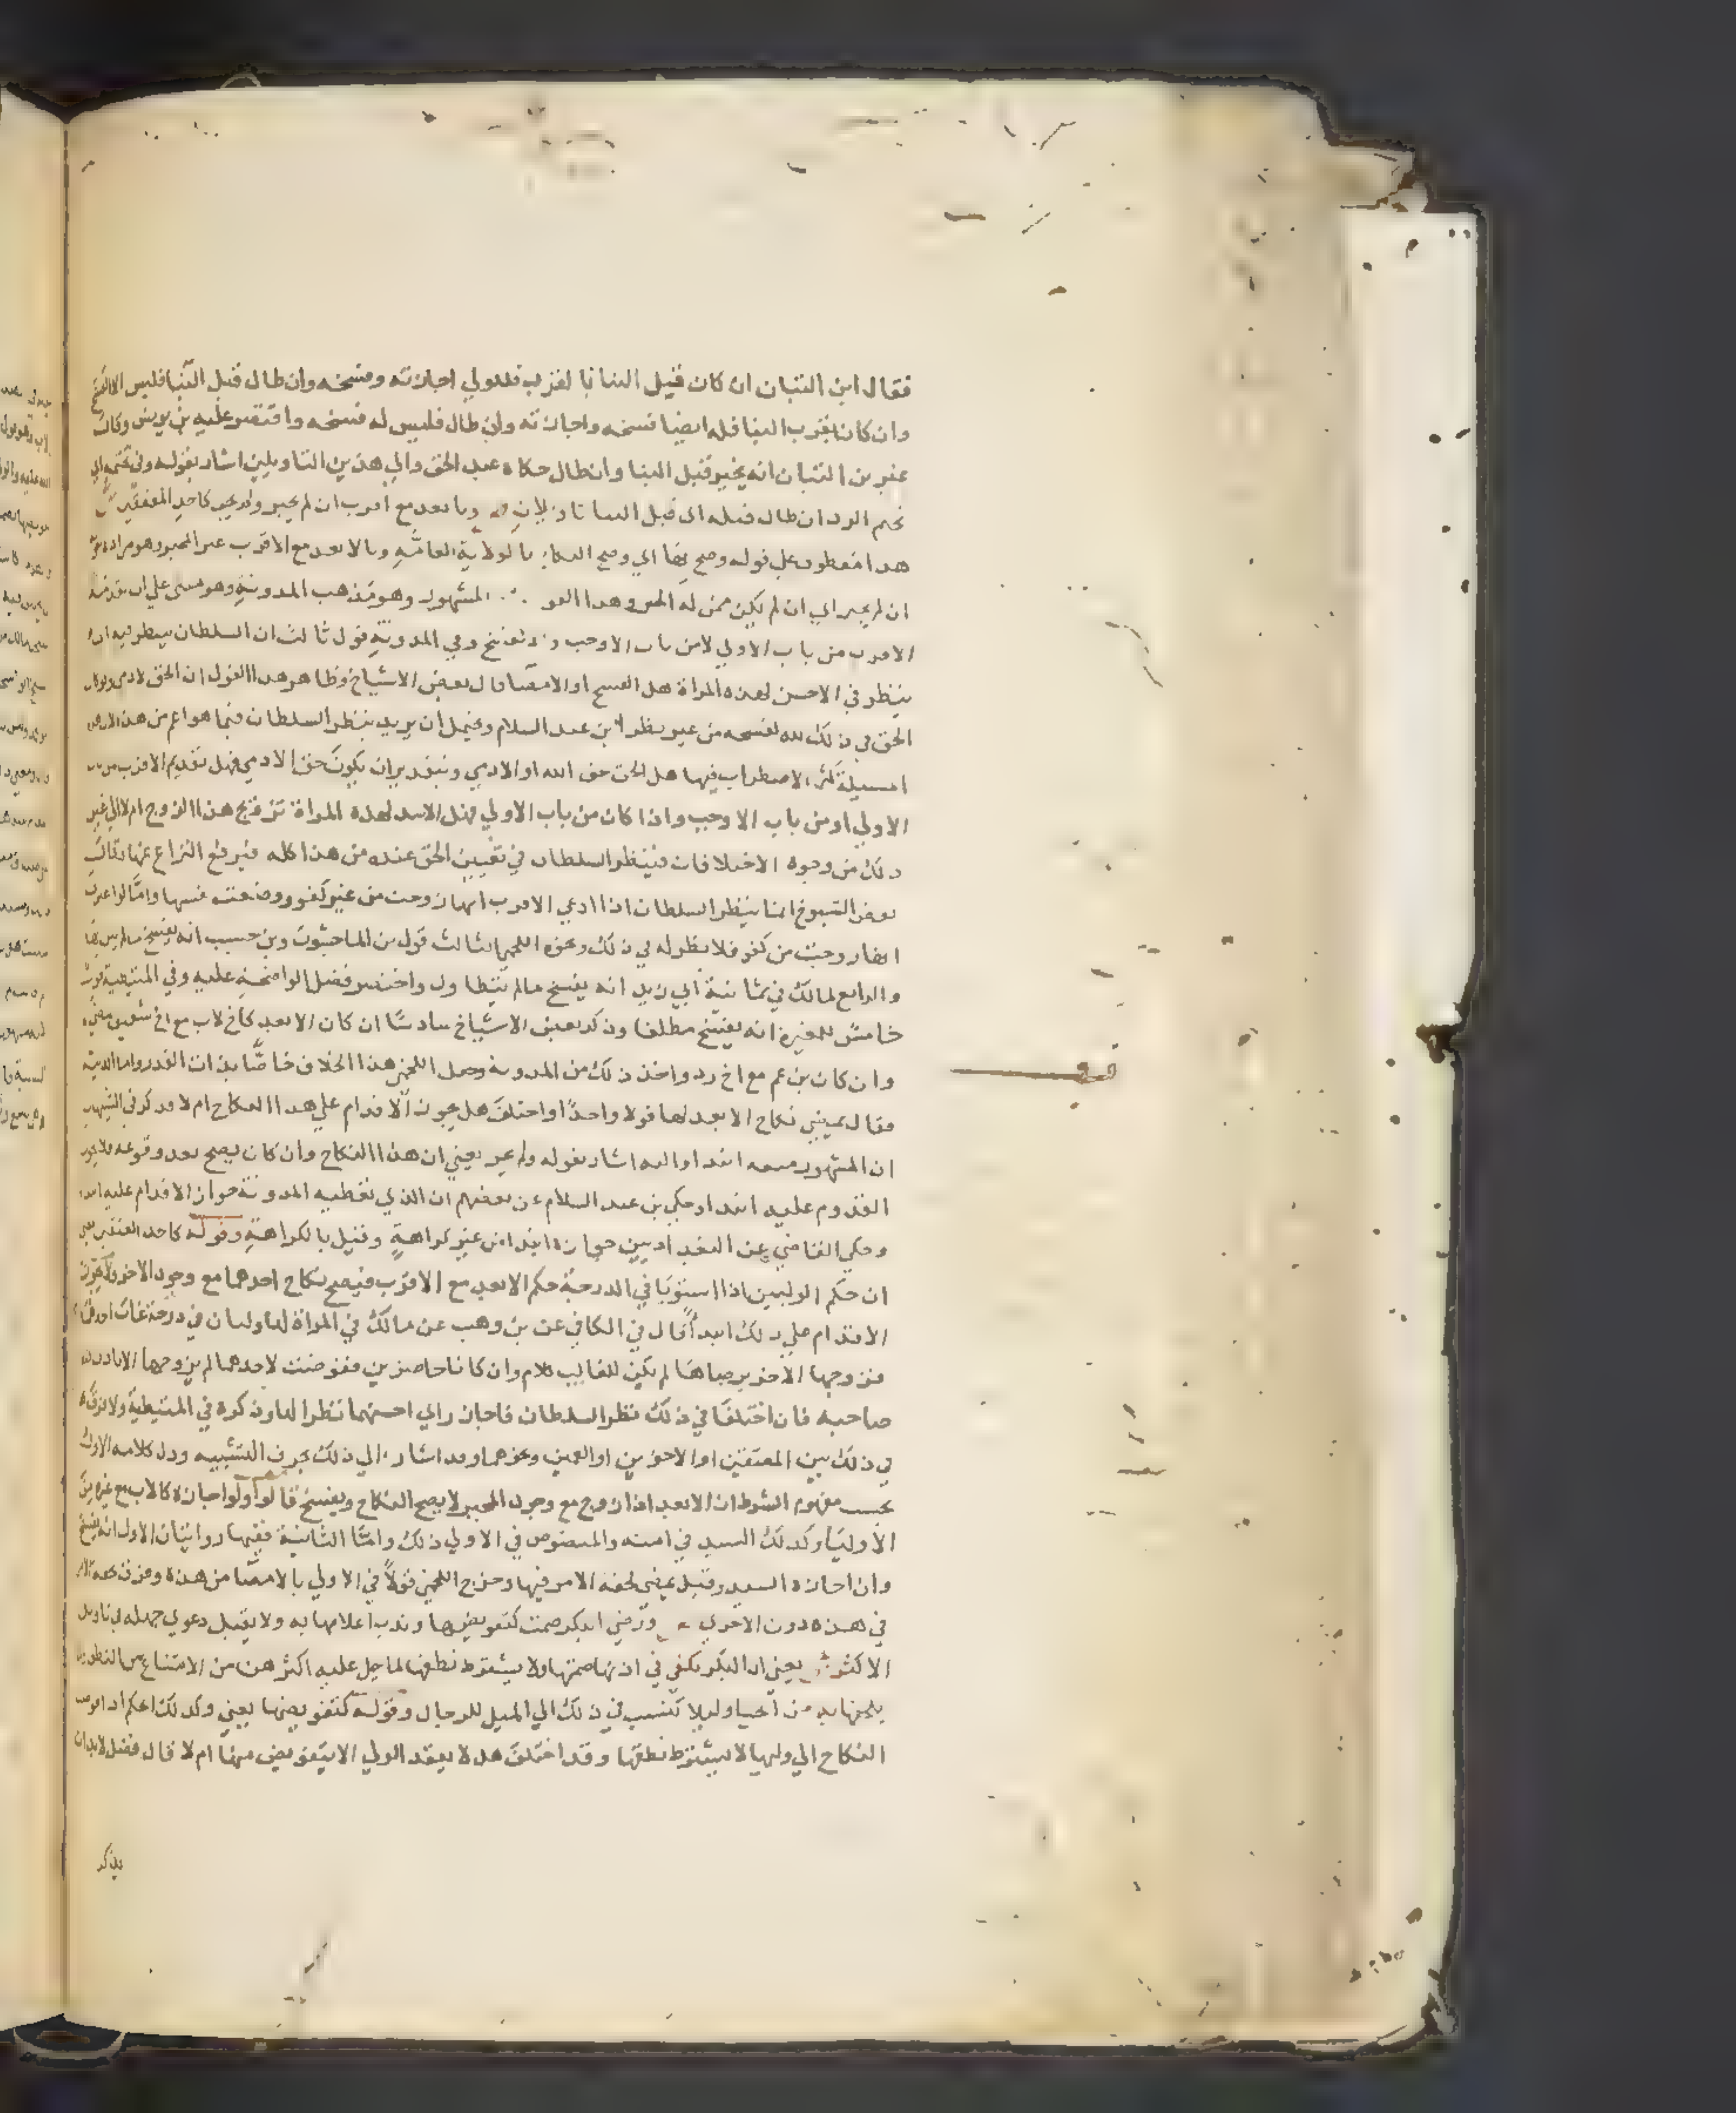 فقال ابن التبان ان كان قبل البنا بالقرب فللولي اجازته وفسخه وان طال قبل البنا فليس الا الفسخ
وان كان بقرب البنا فله ايضا فسخه واجازته وان طال فليس له فسخه واقتصر عليه بن يونس وقال
غير بن التبان انه يخير قبل البنا وان طال حكاه عبد الحق والي هذين التاويلين اشار بقوله وفي تحتمه اي
تحتم الرد ان طال قبله اي قبل البنا تاويلان وبابعد مع اقرب ان لم يجبر ولم يجز كاحد المعتقين ش
هذا معطوف علي قوله وصح بها اي وصح النكاح بالولاية العامة وبالابعد مع الاقرب غير المجبر وهو مراده بقو
ان لم يجبر اي ان لم يكن ممن له الجبر وهذا القو المشهور وهو مذهب المدونة وهو مبني علي ان تقدمة
الاقرب من باب الاولي لا من باب الاوجب وفي المدونة قول ثالث ان السلطان ينظر فيه اي
ينظر في الاحسن لهذه المراة هل الفسخ او الامضا قال بعض الاشياخ وظاهر هذا القول ان الحق لادمي ولو كان
الحق في ذلك لله لفسخه من غير نظر ابن عبد السلام ويحتمل ان يريد ينظر السلطان فيما هو اعم من هذا لان هذه
المسيلة كثر الاضطراب فيها هل الحق حق الله او الادمي وبتقدير ان يكون حق الادمي فهل تقديم الاقرب من باب
الاولي او من باب الاوجب واذا كان من باب الاولي فهل الاسد لهذه المراة تزويج هذا الزوج ام لا الي غير
ذلك من وجوه الاختلافات فينظر السلطان في تعيين الحق عنده من هذا كله فيرفع النزاع عنها وقال
بعض الشيوخ انما ينظر السلطان اذا ادعي الاقرب انها زوجت من غير كفو ووضعت نفسها واما لو اعترف
انها زوجت من كفو فلا ينظر له في ذلك ونحوه اللخمي الثالث قول بن الماجشون وبن حبيب انه يفسخ ما لم يبن بها
والرابع لمالك في ثمانية ابي زيد انه يفسخ ما لم يتطاول واختصر فضل الواضحة عليه وفي المتيطية قول
خامس للمغيرة انه يفسخ مطلقا وذكر بعض الاشياخ سادسا ان كان الابعد كاخ لاب مع اخ شقيق مضي
وان كان بن عم مع اخ رد واخذ ذلك من المدونة وحمل اللخمي هذا الخلاف خاصا بذات القدر واما الدنية
فقال يمضي نكاح الابعد لها قولا واحدا واختلف هل يجوز الاقدام علي هذا النكاح ام لا وذكر في التنبيهات
ان المشهور منعه ابتدا واليه اشار بقوله ولم يجز يعني ان هذا النكاح وان كان يصح بعد وقوعه فلا يجوز
القدوم عليه ابتدا وحكي بن عبد السلام عن بعضهم ان الذي تعطيه المدونة جواز الاقدام عليه ابتدا
وحكي القاضي عن البغداديين جوازه ابتدا من غير كراهة وقيل بالكراهة وقوله كاحد المعتقين يعني
ان حكم الوليين اذا استويا في الدرجة حكم الابعد مع الاقرب فيصح نكاح احدهما مع وجود الاخر ولا يجوز
الاقدام علي ذلك ابتدا قال في الكافي عن بن وهب عن مالك في المراة لها وليان في درجة غاب احدهما
فزوجها الاخر برضاها لم يكن للغايب كلام وان كانا حاضرين ففوضت لاحدهما لم يزوجها الا باذن
صاحبه فان اختلفا في ذلك نظر السلطان فاجاز راي احسنهما نظرا لها وذكره في المتيطية ولا فرق
في ذلك بين المعتقين او الاخوين او العمين ونحوهما وقد اشار الي ذلك بحرف التشبيه ودل كلامه الاول
بحسب مفهوم الشرط ان الابعد اذا زوج مع وجود المجبر لا يصح النكاح ويفسخ قالوا ولو اجازه كالاب مع غيره من
الاوليا وكذلك السيد في امته والمنصوص في الاولي ذلك واما الثانية ففيها روايتان الاولي انه يفسخ
وان اجازه السيد وقيل يمضي لخفة الامر فيها وخرج اللخمي قولا في الاولي بالامضا من هذه وفرق بخفة الامر
في هذه دون الاخري ورضي البكر صمت كتفويضها وندب اعلامها به ولا يقبل دعوي جهله في تاويل
الاكثر ش يعني ان البكر يكفي في اذنها صمتها ولا يشترط نطقها لما جبل عليه اكثرهن من الامتناع من النطق
يلحقها به من الحيا وليلا تنسب في ذلك الي الميل للرجال وقوله كتفويضها يعني وكذلك الحكم اذا فوضت
النكاح الي وليها لا يشترط نطقها وقد اختلف هل لا يعقد الولي الا بتفويض منها ام لا قال فضل لا بد ان
يذكر